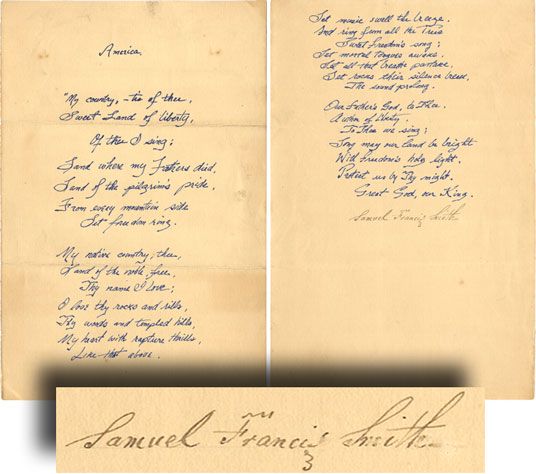 America.
"My country, - tis of thee,
Sweet Land of liberty,
Of thee I sing;
Land where my Fathers died,
Land of the pilgrims pride,
From every mountain side
Let freedom ring.
My native country, thee,
Land of the noble, free,
Thy name I love;
I love thy rocks and rills,
Thy woods and templed hills,
My heart with rapture thrills,
Like that above.
Let music swell the breeze.
And ring from all the trees
Sweet freedom's song;
Let mortal tongues awake.
Let all that breathe partake,
Let rocks their silence break,
The sound prolong.
Our Father's God, to Thee.
Author of liberty.
To Thee we sing;
Long may our land be bright
With freedom's holy light,
Protect us by Thy might.
Great God, our King.
Samuel Francis Smith
Samuel Francis Smith